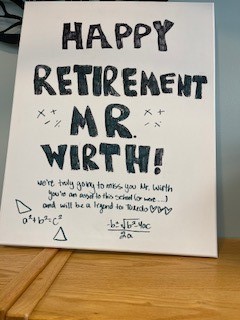 HAPPY
RETIREMENT
MR.
WIRTH!
we're truly going to miss you Mr. Wirth
you're an asset to this school (or were....)
and will be a legend to Toledo ♡♡♡
a²+b²=c²
-b±√b²-4ac
2a